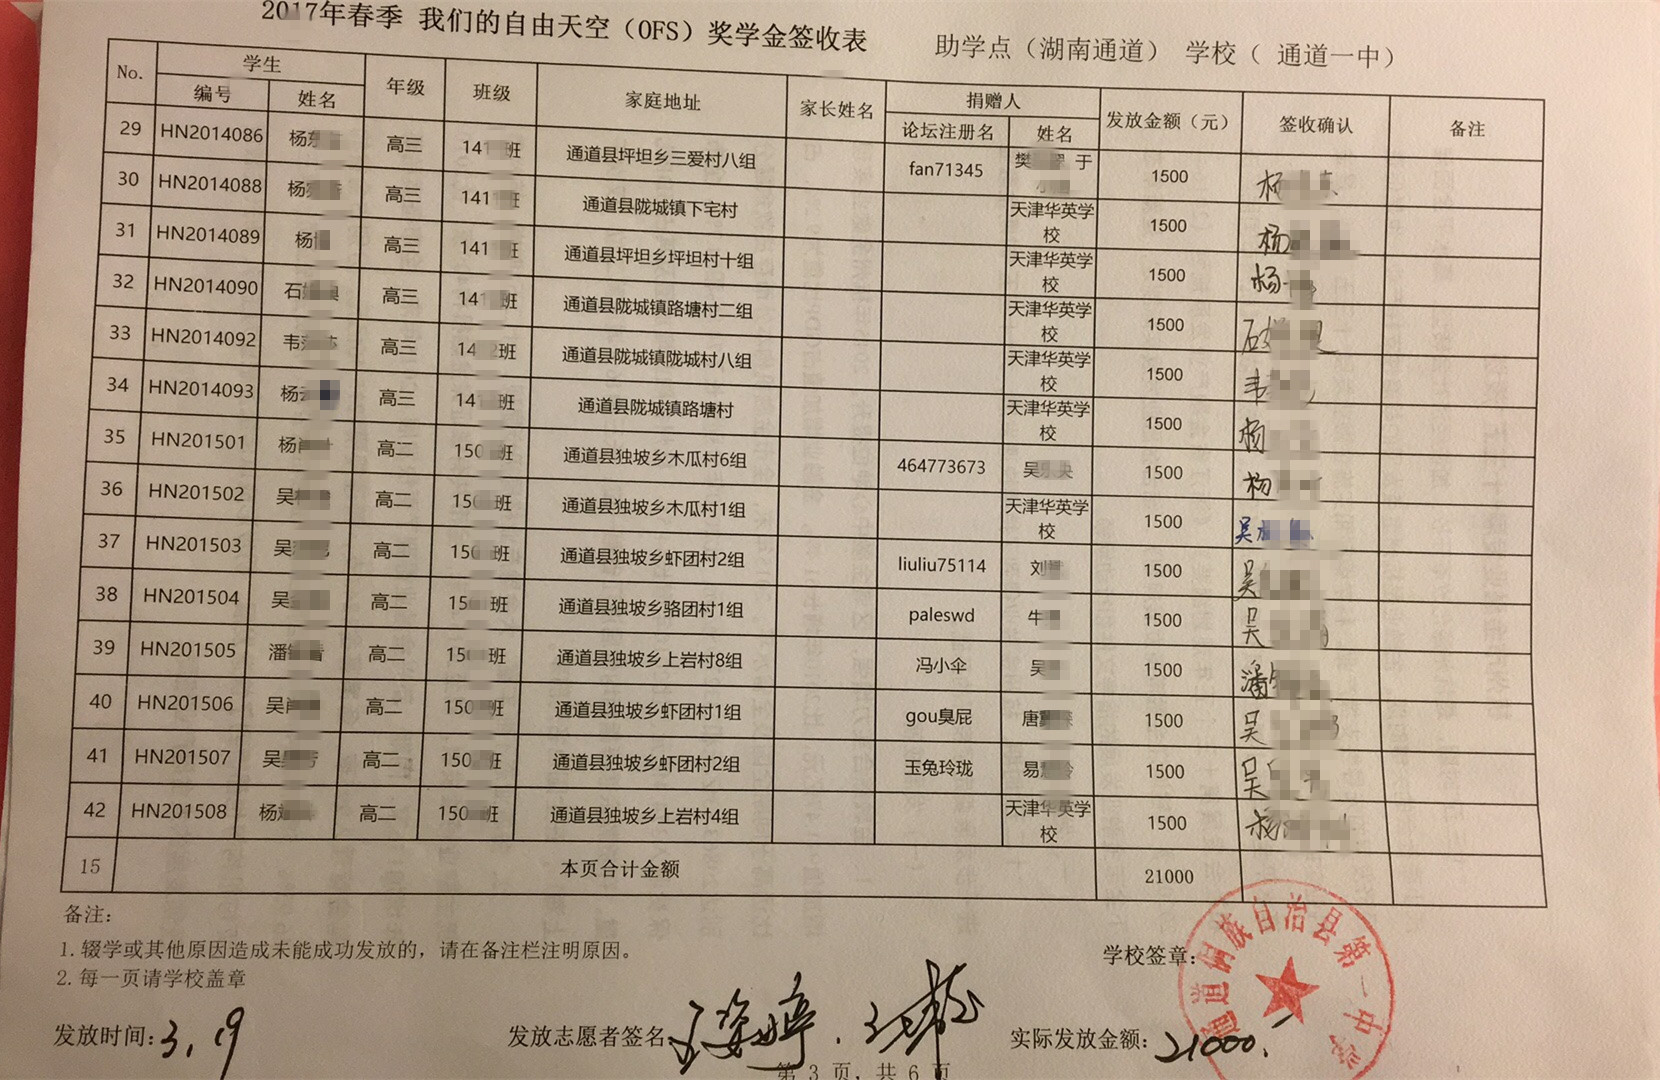 2017年春季 我们的自由天空（OFS）奖学金签收表 助学点（湖南通道） 学校（ 通道一中）
No. 学生 年级 班级 家庭地址 家长姓名 捐赠人 发放金额（元） 签收确认 备注
编号 姓名 论坛注册名 姓名
29 HN2014086 杨 高三 141 班 通道县坪坦乡三爱村八组 fan71345 樊 于 1500 杨
30 HN2014088 杨 高三 141 班 通道县陇城镇下宅村 天津华英学校 1500 杨
31 HN2014089 杨 高三 141 班 通道县坪坦乡坪坦村十组 天津华英学校 1500 杨
32 HN2014090 石 高三 141 班 通道县陇城镇路塘村二组 天津华英学校 1500 石
33 HN2014092 韦 高三 14 班 通道县陇城镇陇城村八组 天津华英学校 1500 韦
34 HN2014093 杨 高三 141 班 通道县陇城镇路塘村 天津华英学校 1500 杨
35 HN201501 杨 高二 150 班 通道县独坡乡木瓜村6组 464773673 吴 1500 杨
36 HN201502 吴 高二 150 班 通道县独坡乡木瓜村1组 天津华英学校 1500 吴
37 HN201503 吴 高二 150 班 通道县独坡乡虾团村2组 liuliu75114 刘 1500 吴
38 HN201504 吴 高二 150 班 通道县独坡乡骆团村1组 paleswd 牛 1500 吴
39 HN201505 潘 高二 150 班 通道县独坡乡上岩村8组 冯小伞 吴 1500 潘
40 HN201506 吴 高二 150 班 通道县独坡乡虾团村1组 gou臭屁 唐 1500 吴
41 HN201507 吴 高二 150 班 通道县独坡乡虾团村2组 玉兔玲珑 易 1500 吴
42 HN201508 杨 高二 150 班 通道县独坡乡上岩村4组 天津华英学校 1500 杨
15 本页合计金额 21000
备注：
1. 辍学或其他原因造成未能成功发放的，请在备注栏注明原因。
2. 每一页请学校盖章
学校签章：
通道侗族自治县第一中学
发放时间：3.19 发放志愿者签名： 实际发放金额：21000.
第 3 页，共 6 页